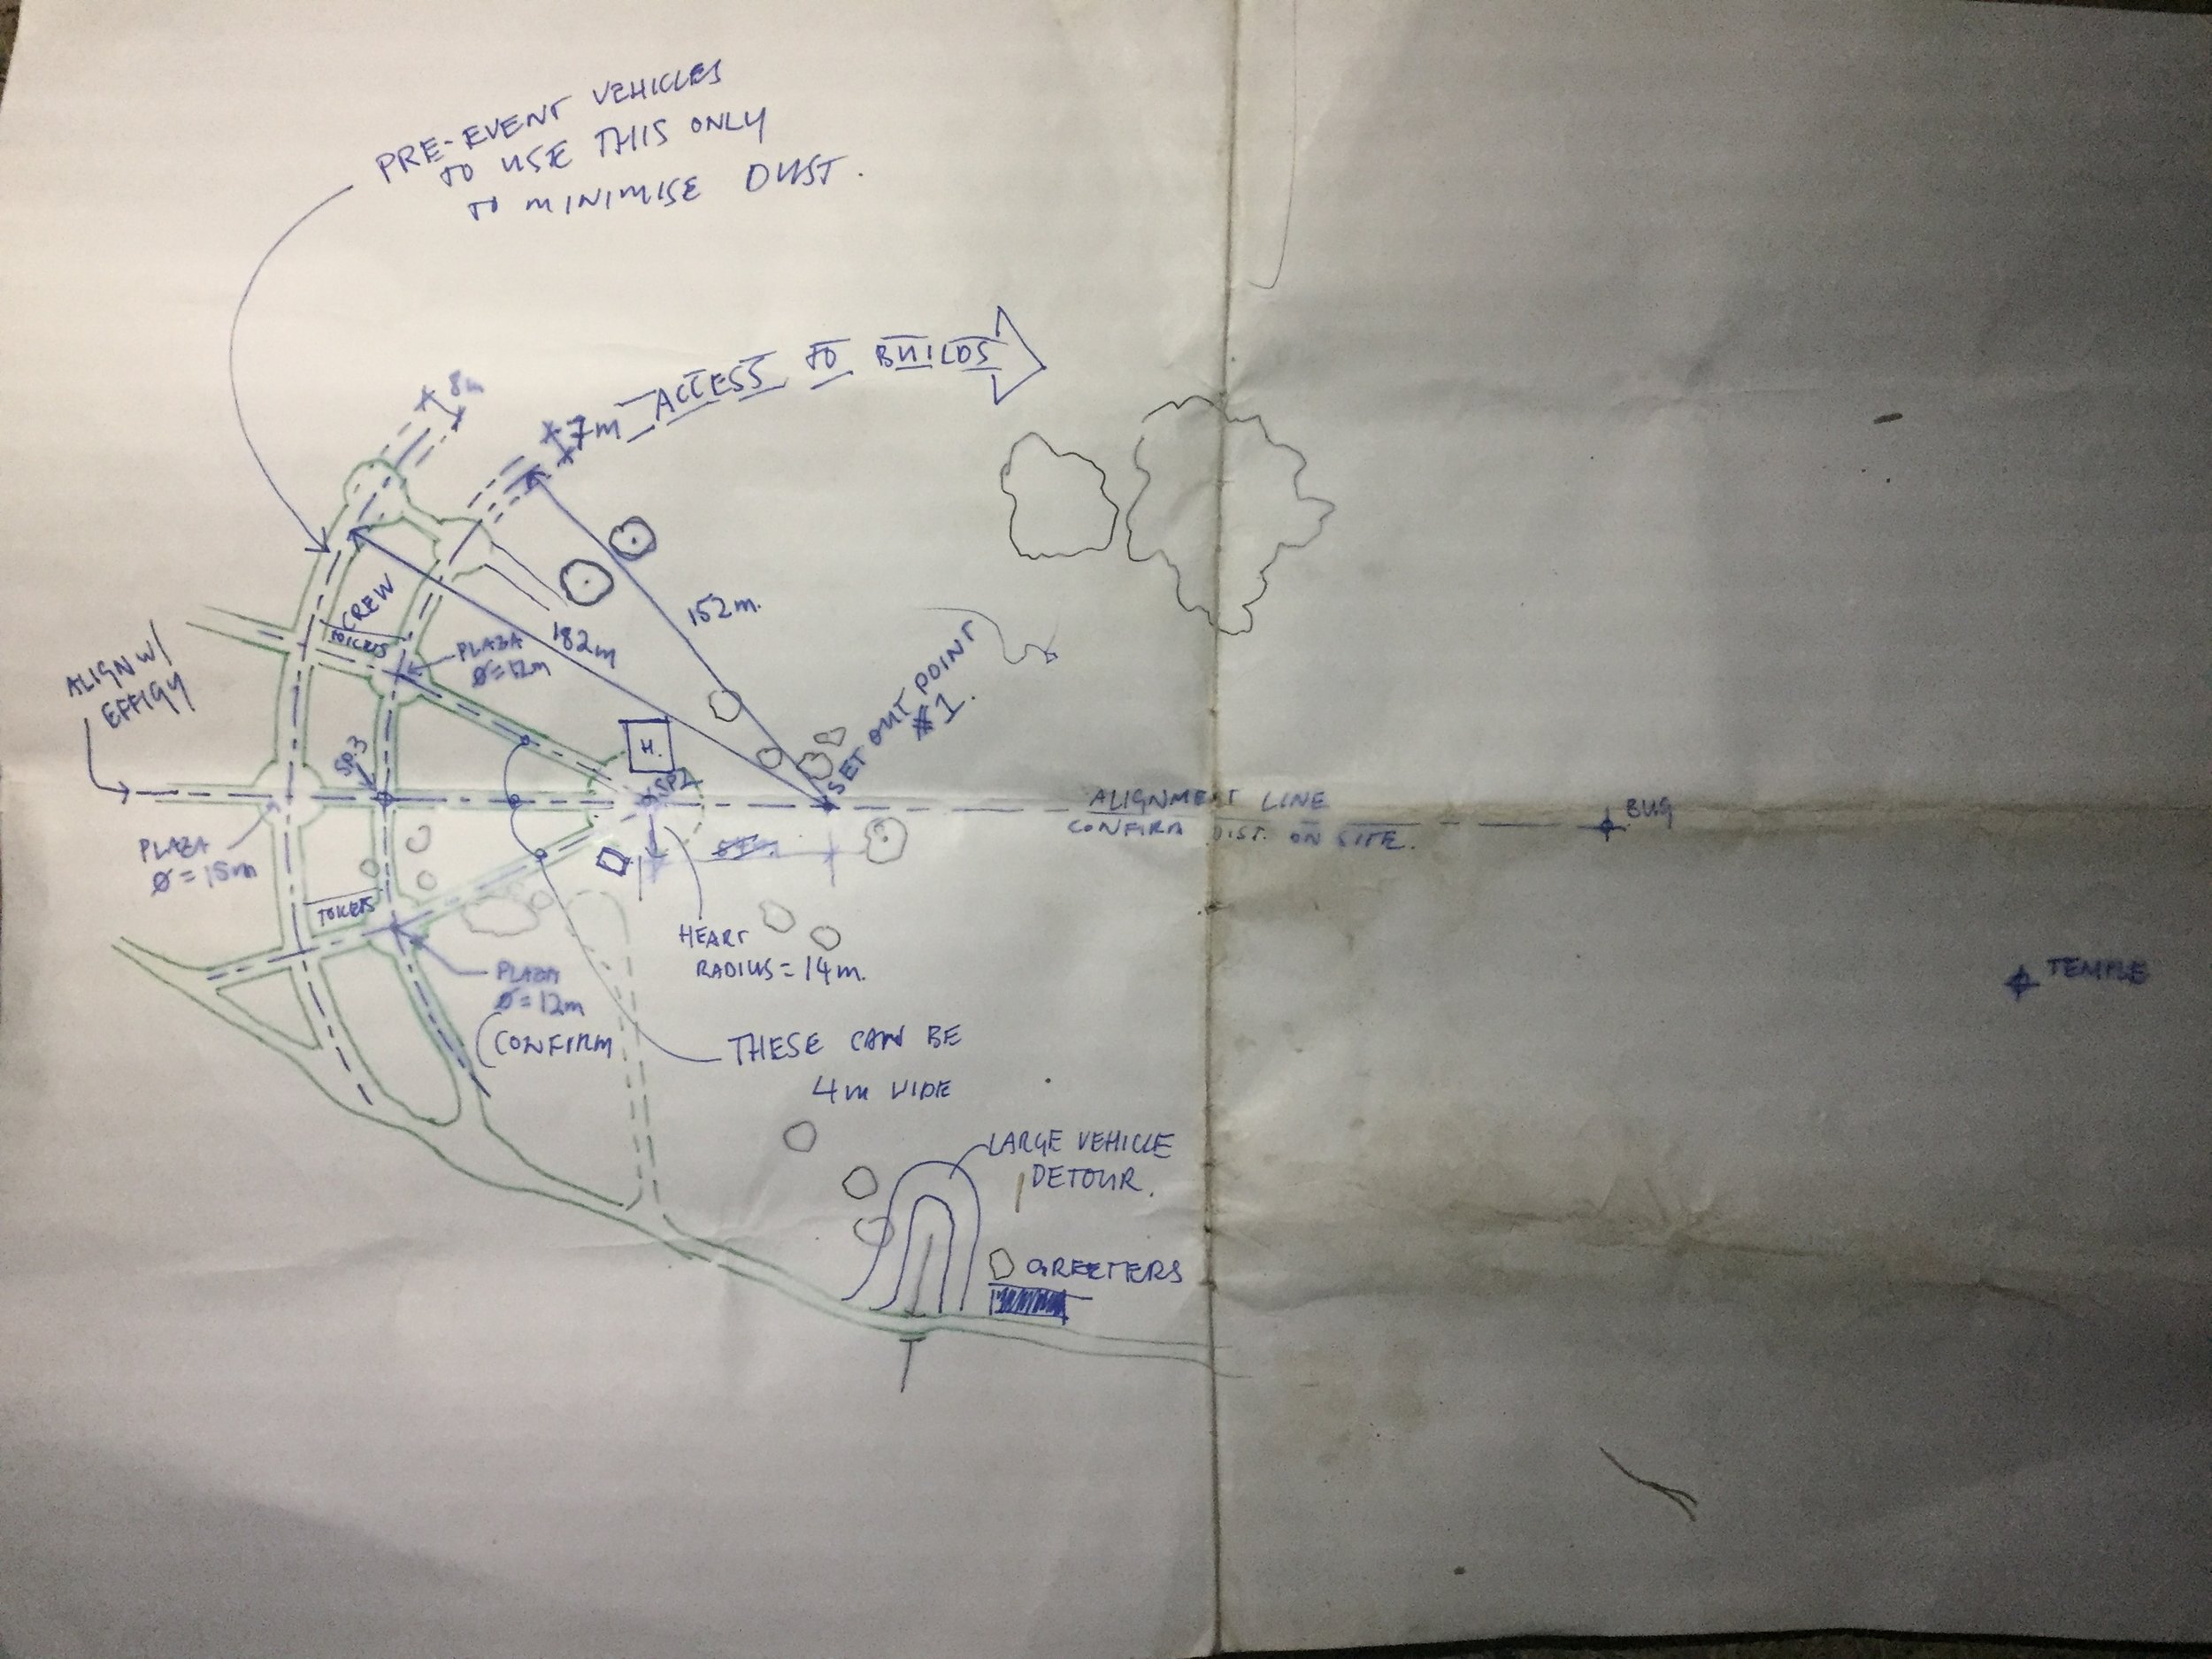 PRE-EVENT VEHICLES
TO USE THIS ONLY
TO MINIMISE DUST.
8m
7m
ACCESS TO BUILDS
CREW
TOILETS
PLAZA
Ø=12m
182m
152m.
ALIGN W/
EFFIGY
SET OUT POINT
#1.
H.
SP3
SP2
ALIGNMENT LINE
CONFIRM DIST. ON SITE.
BUG
PLAZA
Ø=15m
TOILETS
HEART
RADIUS=14m.
TEMPLE
PLAZA
Ø=12m
(CONFIRM
THESE CAN BE
4m WIDE
LARGE VEHICLE
DETOUR.
GREETERS